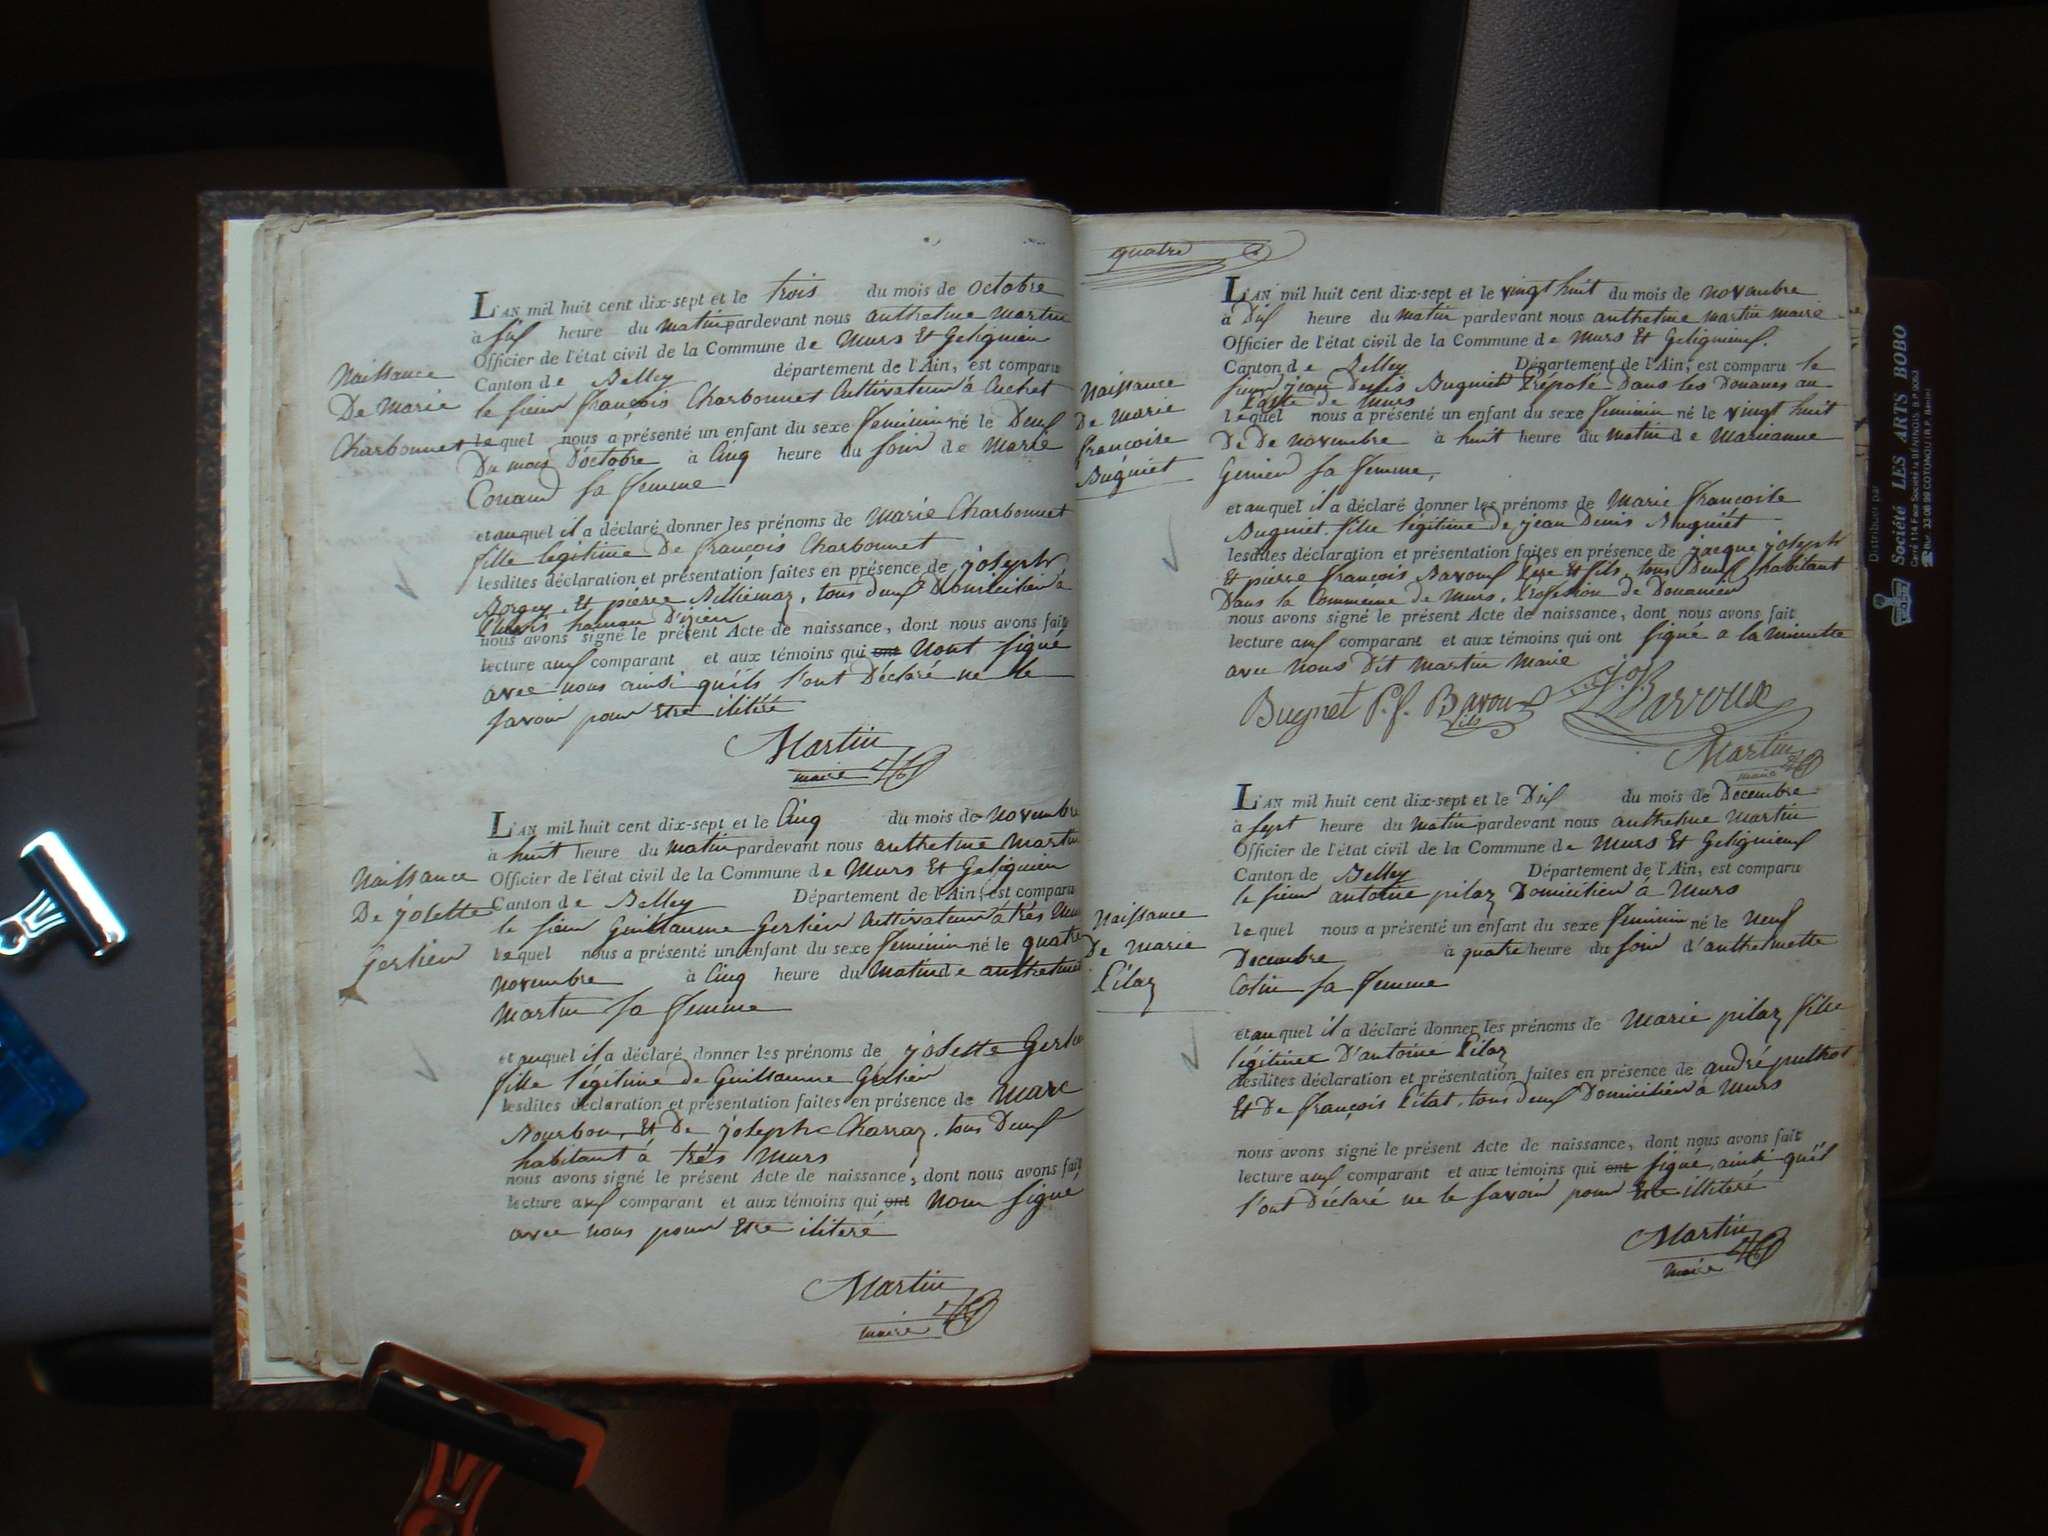 L'AN mil huit cent dix-sept et le trois du mois de octobre
à six heure du matin pardevant nous anthelme martin
Officier de l'état civil de la Commune de Murs Et Gelignieu
Canton de Belley département de l'Ain, est comparu
le sieur françois Charbonnet Cultivateur à Cuchet
lequel nous a présenté un enfant du sexe feminin né le Deux
Du mois D'octobre à Cinq heure du soir de Marie
sa femme
et auquel il a déclaré donner les prénoms de Marie Charbonnet
fille legitime De françois Charbonnet
lesdites déclaration et présentation faites en présence de joseph
Borgey Et pierre Billiemaz, tous deux Domicilien à
D'izieu
nous avons signé le présent Acte de naissance, dont nous avons fait
lecture aux comparant et aux témoins qui ont Nont signé
avec nous ainsi qu'ils l'ont Déclaré ne le
savoir pour Etre ilitéré
Martin
maire
Naissance
De Marie
Charbonnet
L'AN mil huit cent dix-sept et le Cinq du mois de novembre
à huit heure du matin pardevant nous anthelme martin
Officier de l'état civil de la Commune de Murs Et Gelignieu
Canton de Belley Département de l'Ain, est comparu
le sieur Guillaume Gerlien Cultivateur à trés Murs
lequel nous a présenté un enfant du sexe feminin né le quatre
novembre à Cinq heure du matin de anthelmette
Martin sa femme
et auquel il a déclaré donner les prénoms de josette Gerlien
fille légitime de Guillaume Gerlien
lesdites déclaration et présentation faites en présence de Marc
Bourbon, Et De joseph Charraz, tous Deux
habitant à trés Murs
nous avons signé le présent Acte de naissance, dont nous avons fait
lecture aux comparant et aux témoins qui ont Nont signé
avec nous pour Etre ilitéré
Martin
maire
Naissance
De josette
Gerlien
quatre
L'AN mil huit cent dix-sept et le vingt huit du mois de novembre
à Dix heure du matin pardevant nous anthelme martin maire
Officier de l'état civil de la Commune de Murs Et Gelignieux
Canton de Belley Département de l'Ain, est comparu le
sieur jean Denis Bugniet Préposé Dans les Douanes au
Poste de Murs
lequel nous a présenté un enfant du sexe feminin né le vingt huit
De De novembre à huit heure du matin de Marianne
sa femme,
et auquel il a déclaré donner les prénoms de Marie françoise
Bugniet fille légitime de jean Denis Bugniet
lesdites déclaration et présentation faites en présence de jacque joseph
Et pierre françois Bavoux Pere Et fils, tous Deux habitant
Dans la Commune de Murs, Profession de Douanier
nous avons signé le présent Acte de naissance, dont nous avons fait
lecture aux comparant et aux témoins qui ont signé a la minutte
avec nous Dit Martin Maire
Bugnet P. f. Bavoux fils J. J. Bavoux
Martin
maire
Naissance
De Marie
françoise
Bugniet
L'AN mil huit cent dix-sept et le Dix du mois de Décembre
à sept heure du matin pardevant nous anthelme martin
Officier de l'état civil de la Commune de Murs Et Gelignieux
Canton de Belley Département de l'Ain, est comparu
le sieur antoine pilaz Domicilien à Murs
lequel nous a présenté un enfant du sexe feminin né le neuf
Decembre à quatre heure du soir d'anthelmette
Cotin sa femme
et auquel il a déclaré donner les prénoms de Marie pilaz fille
légitime D'antoine Pilaz
lesdites déclaration et présentation faites en présence de andré
Et De françois Pitat, tous deux Domicilien à Murs
nous avons signé le présent Acte de naissance, dont nous avons fait
lecture aux comparant et aux témoins qui ont signé, ainsi qu'il
l'ont Déclaré ne le savoir pour Etre illiteré
Martin
maire
Naissance
De Marie
Pilaz
Distribué par
Société LES ARTS BOBO